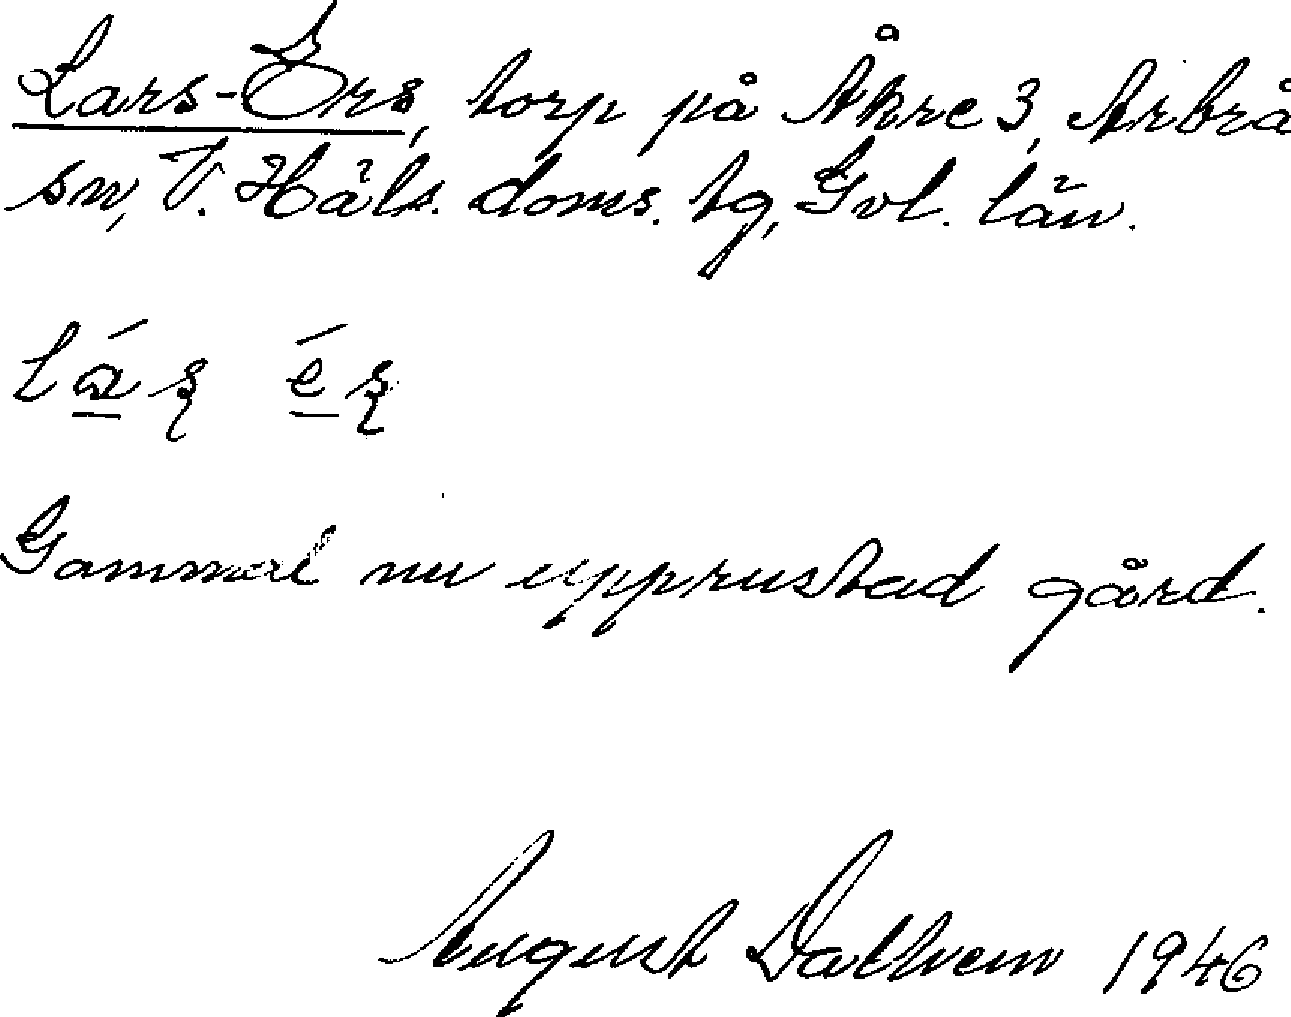 Lars-Ers, torp på Åkre 3, Arbrå
sn, V. Häls. doms. tg, Gvl. län.
lá̱ʂ é̱ʂ
Gammal nu upprustad gård.
August Dalhem 1946